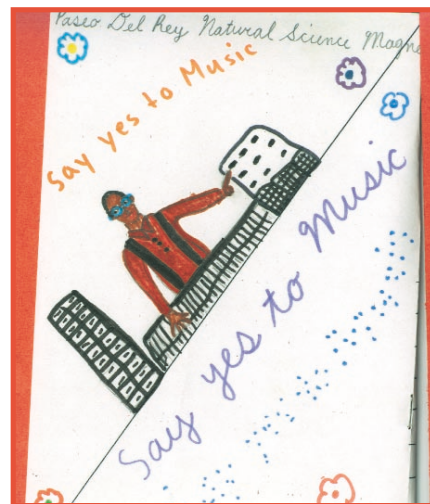 Paseo Del Rey Natural Science Magne
Say yes to Music
Say yes to Music